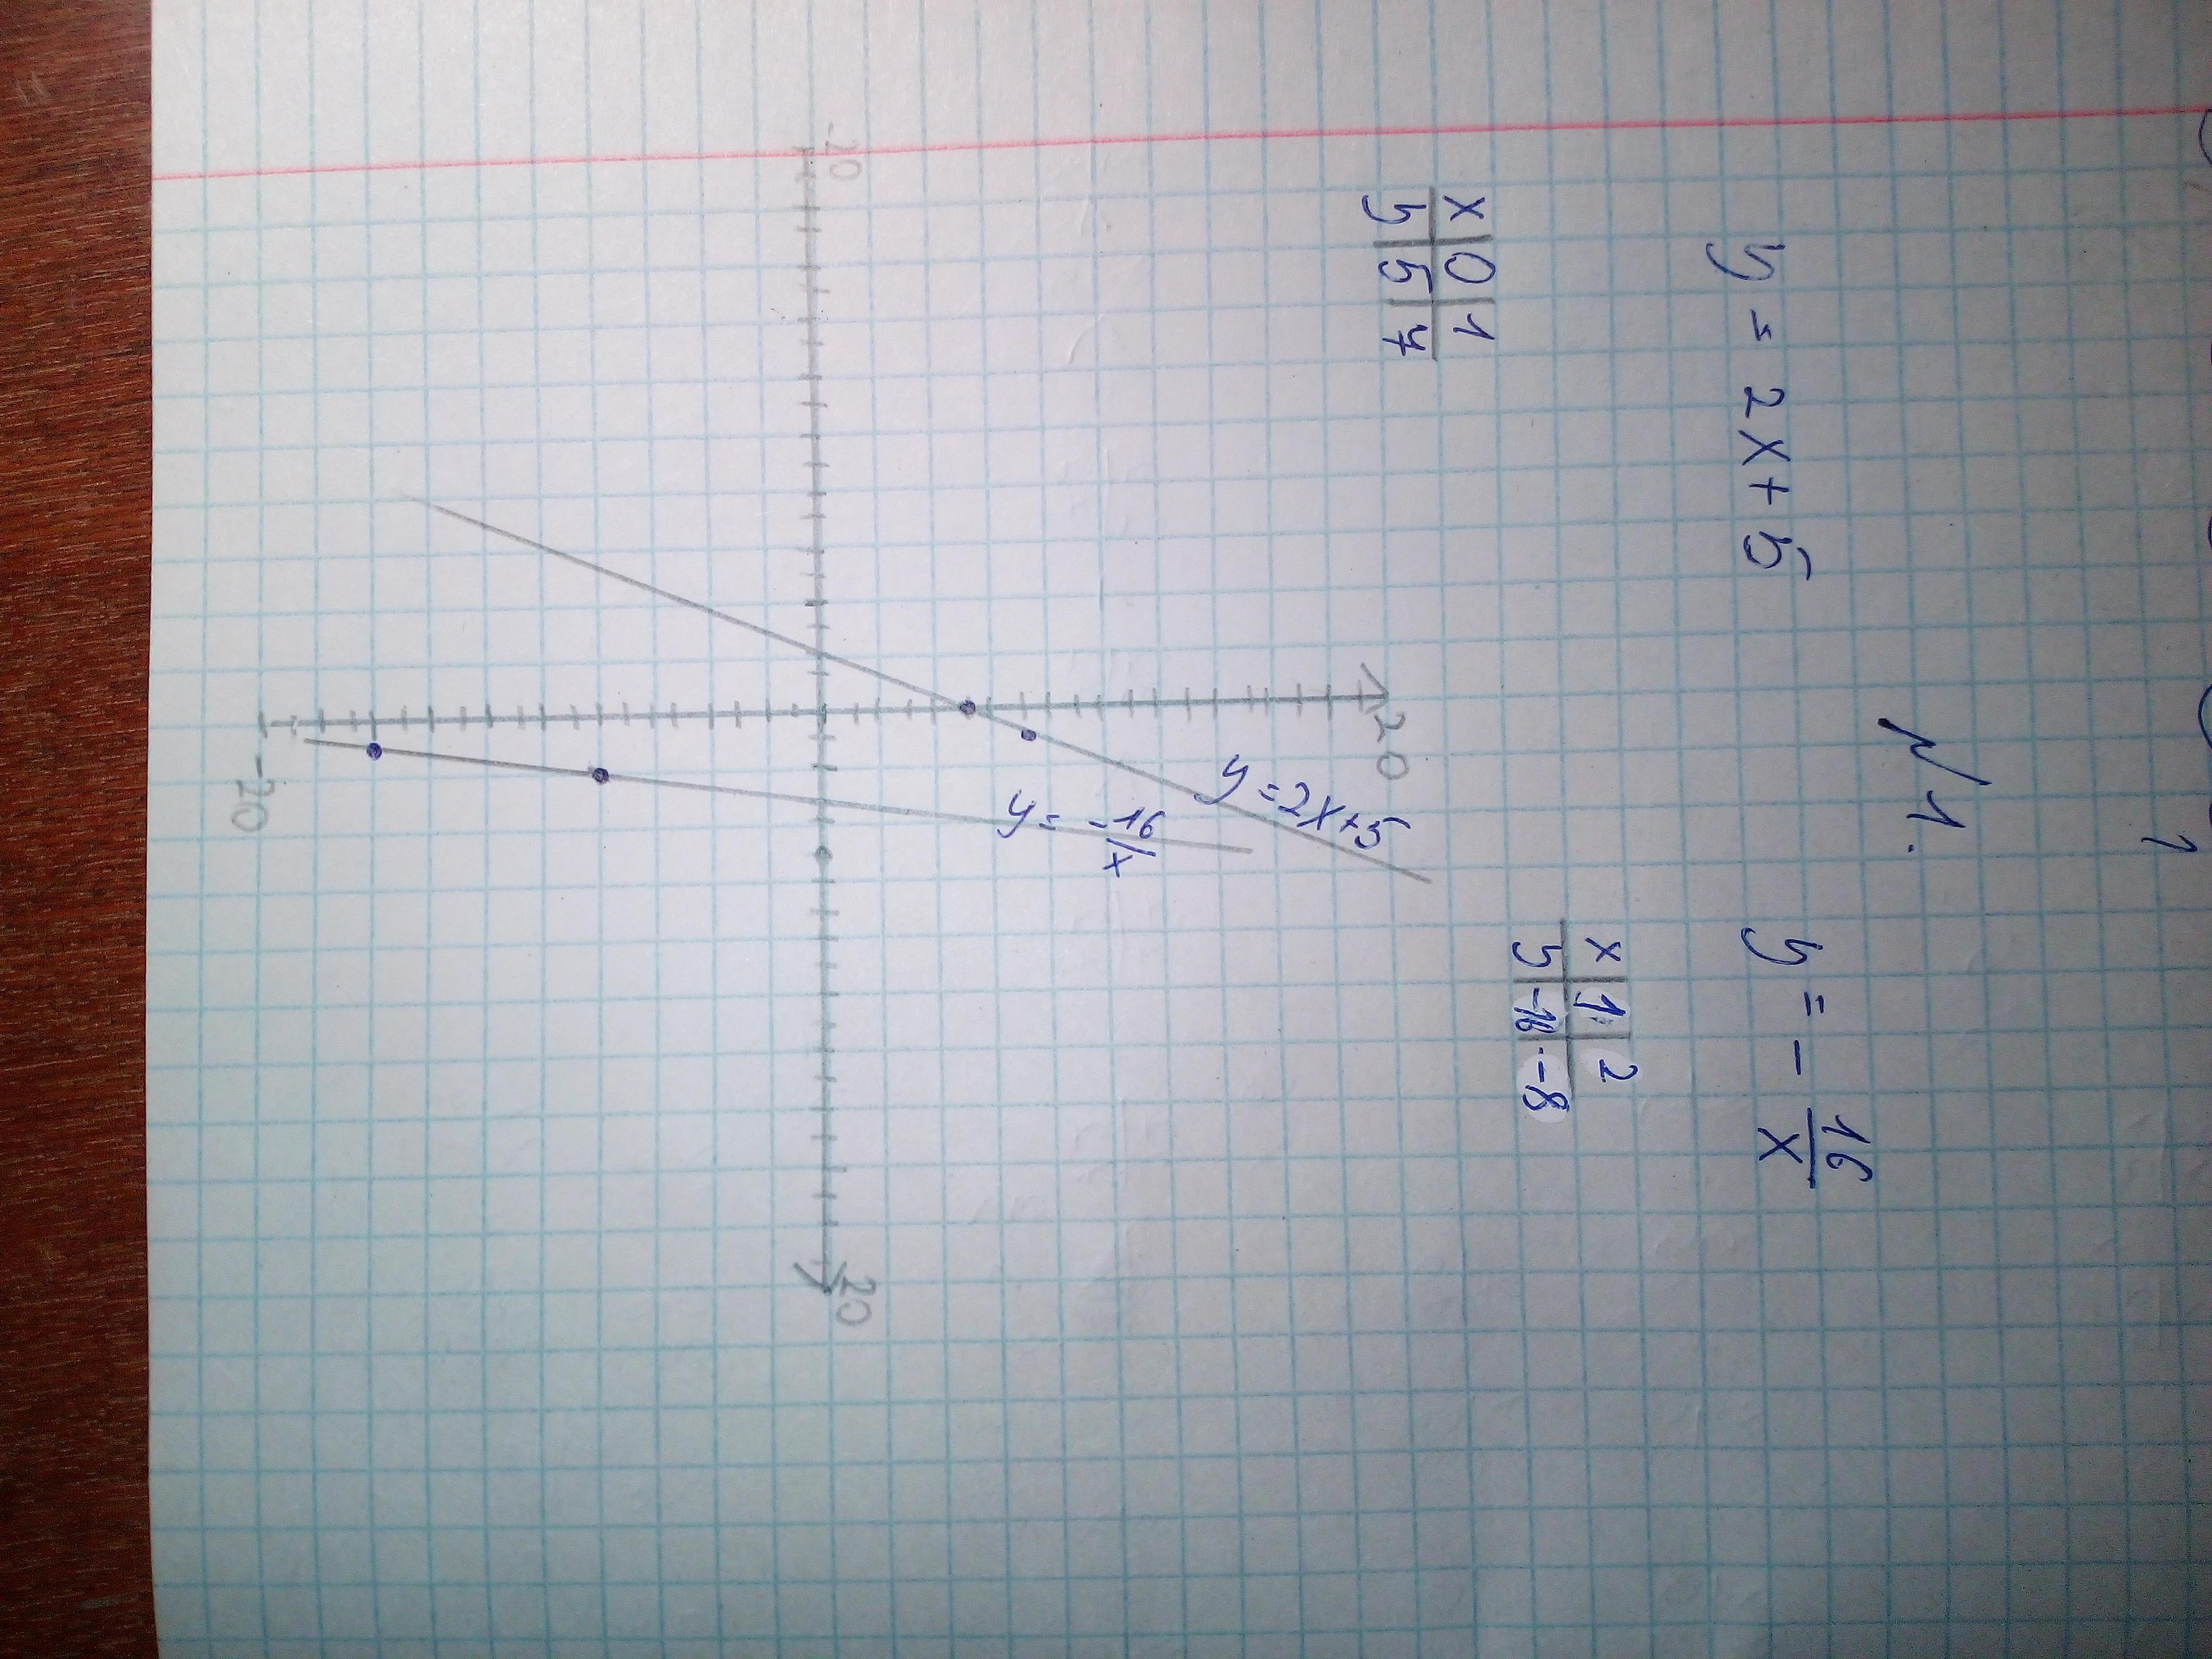 1
№1.
y = 2x+5
y = - 16/x
x 0 1
y 5 7
x 1 2
y -16 -8
20
y=2x+5
y= -16/x
-20
20
-20